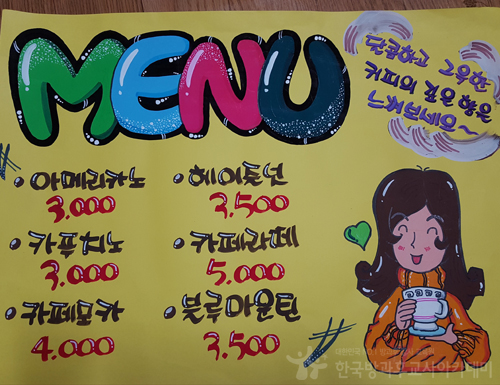 MENU
달콤하고 그윽한
커피의 깊은 향은
느껴보세요~
• 아메리카노
3.000
• 헤이즐넛
3.500
• 카푸치노
3.000
• 카페라떼
5.000
• 카페모카
4.000
• 블루마운틴
3.500
한국방과후교사아카데미